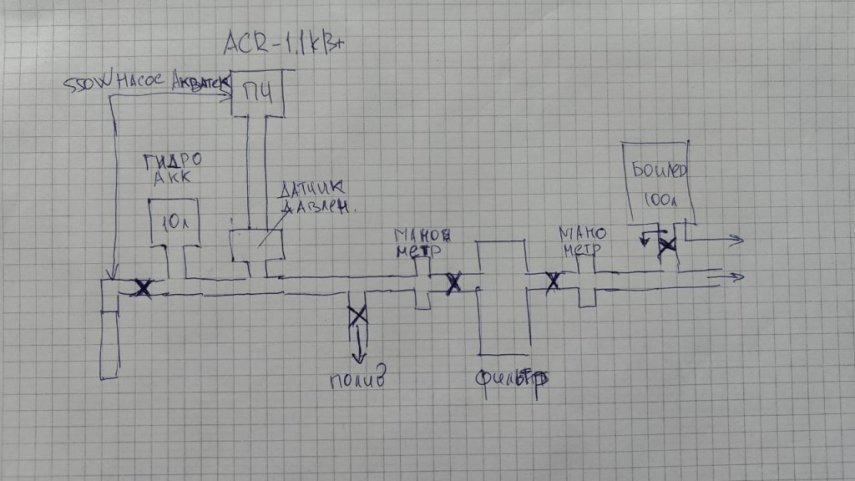 ACR-1,1кВт
550W НАСОС АКВАТЕК
ПЧ
ГИДРО
АКК
10л
ДАТЧИК
ДАВЛЕН.
МАНО
МЕТР
МАНО
МЕТР
БОЙЛЕР
100л
ПОЛИВ
ФИЛЬТР